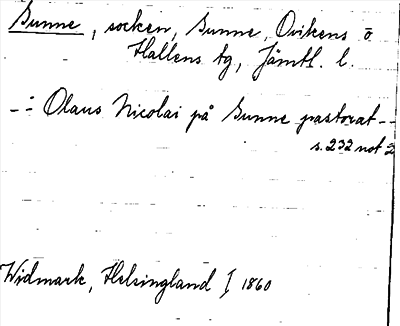 Sunne, socken, Sunne, Ovikens o
Hallens tg, Jämtl. l.
-:- Olaus Nicolai på Sunne pastorat --
s. 232 not 2
Widmark, Helsingland I 1860